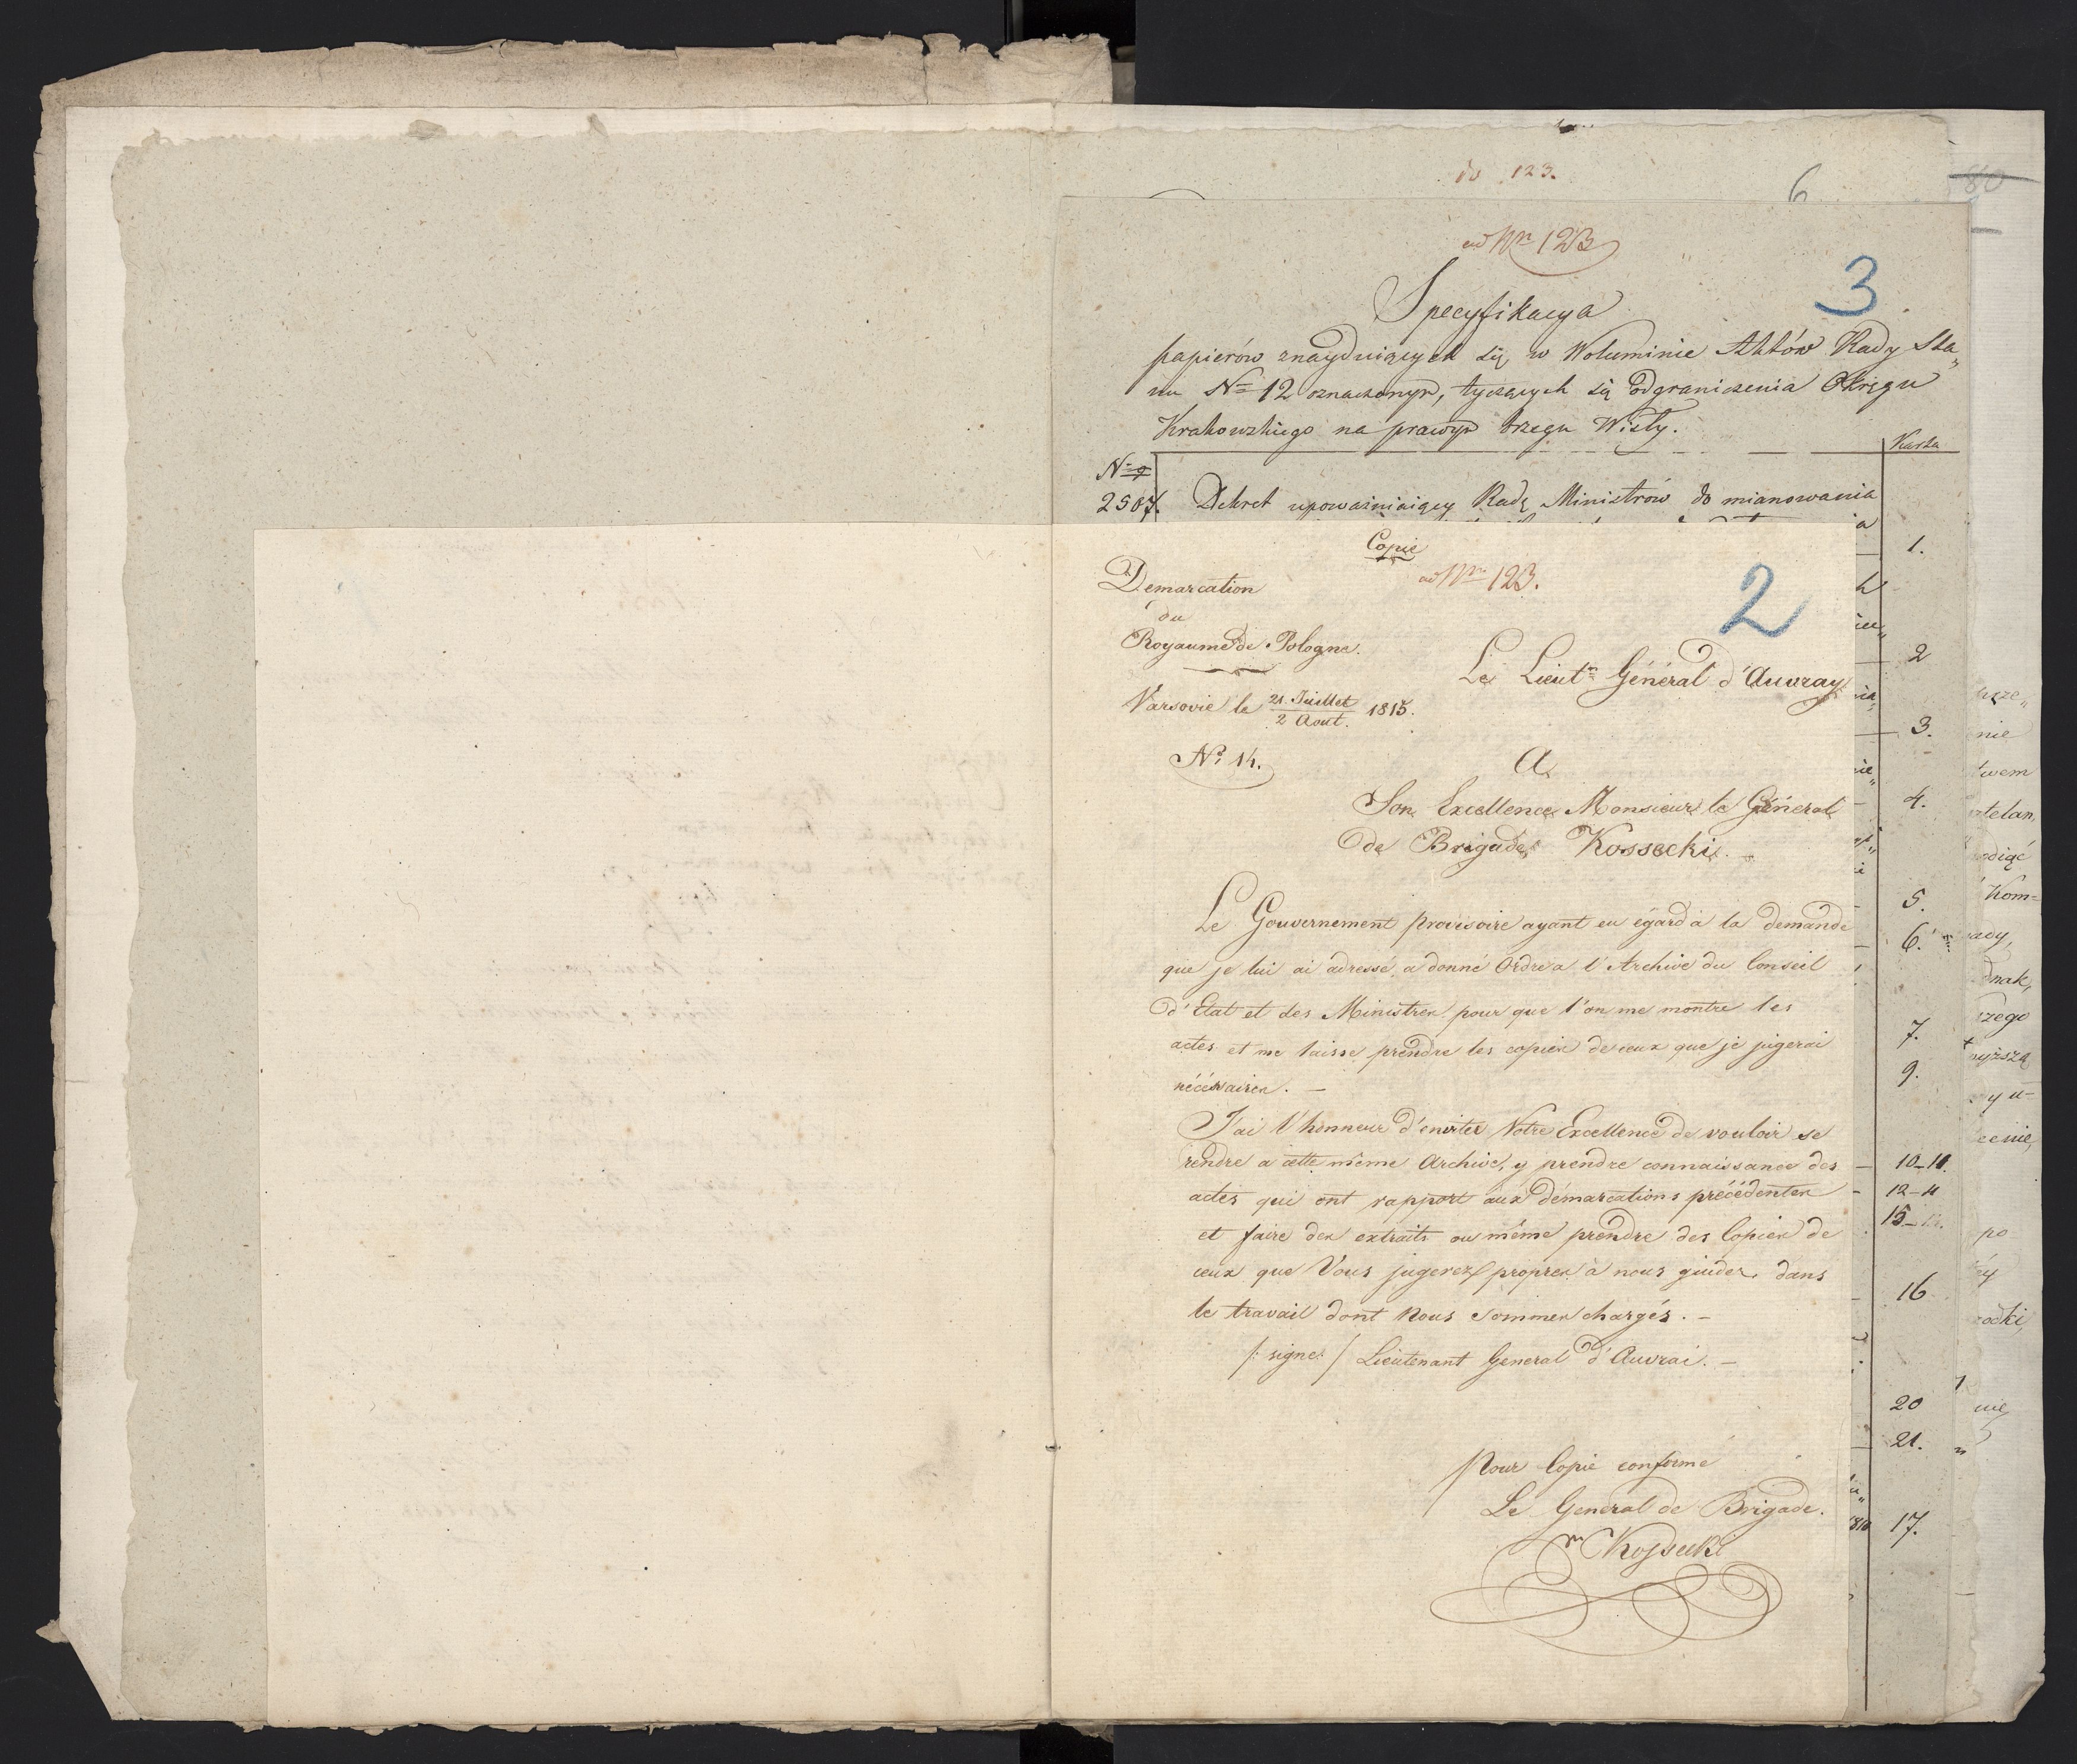 do 123.
6
80
ad Nrn 123
3
Specyfikacya
papierów znayduiących się w Woluminie Aktów Rady Sta„
nu No 12 oznaczonym, tyczących się odgraniczenia Okręgu
Krakowskiego na prawym brzegu Wisły.
Karta
No
2507. Dekret upoważniaiący Radę Ministrów do mianowania
1.
2
3.
4.
5.
6.
7.
9.
10-11.
12-
15-
16
20
21.
17.
Copie
ad Nrm 123.
2
Demarcation
du
Royaume de Pologne.
Le Lieutn Général d'Auvray
Varsovie le 21. Juillet / 2 Aout. 1815.
No 14.
A
Son Excellence Monsieur le Géneral
de Brigade Kossecki.
Le Gouvernement provisoire ayant eu égard à la demande
que je lui ai adressé, a donné Ordre a l'Archive du Conseil
d'Etat et des Ministres pour que l'on me montre les
actes et me laisse prendre les copies de ceux que je jugerai
nécéssaires. —
J'ai l'honneur d'inviter Votre Excellence de vouloir se
rendre a cette même Archive, y prendre connaissance des
actes qui ont rapport aux démarcations précédentes
et faire des extraits ou même prendre des Copies de
ceux que Vous jugerez propres à nous guider dans
le travail dont Nous sommes chargés. —
/: signé: / Lieutenant General d'Auvrai. —
Pour Copie conforme
Le General de Brigade.
Kossecki